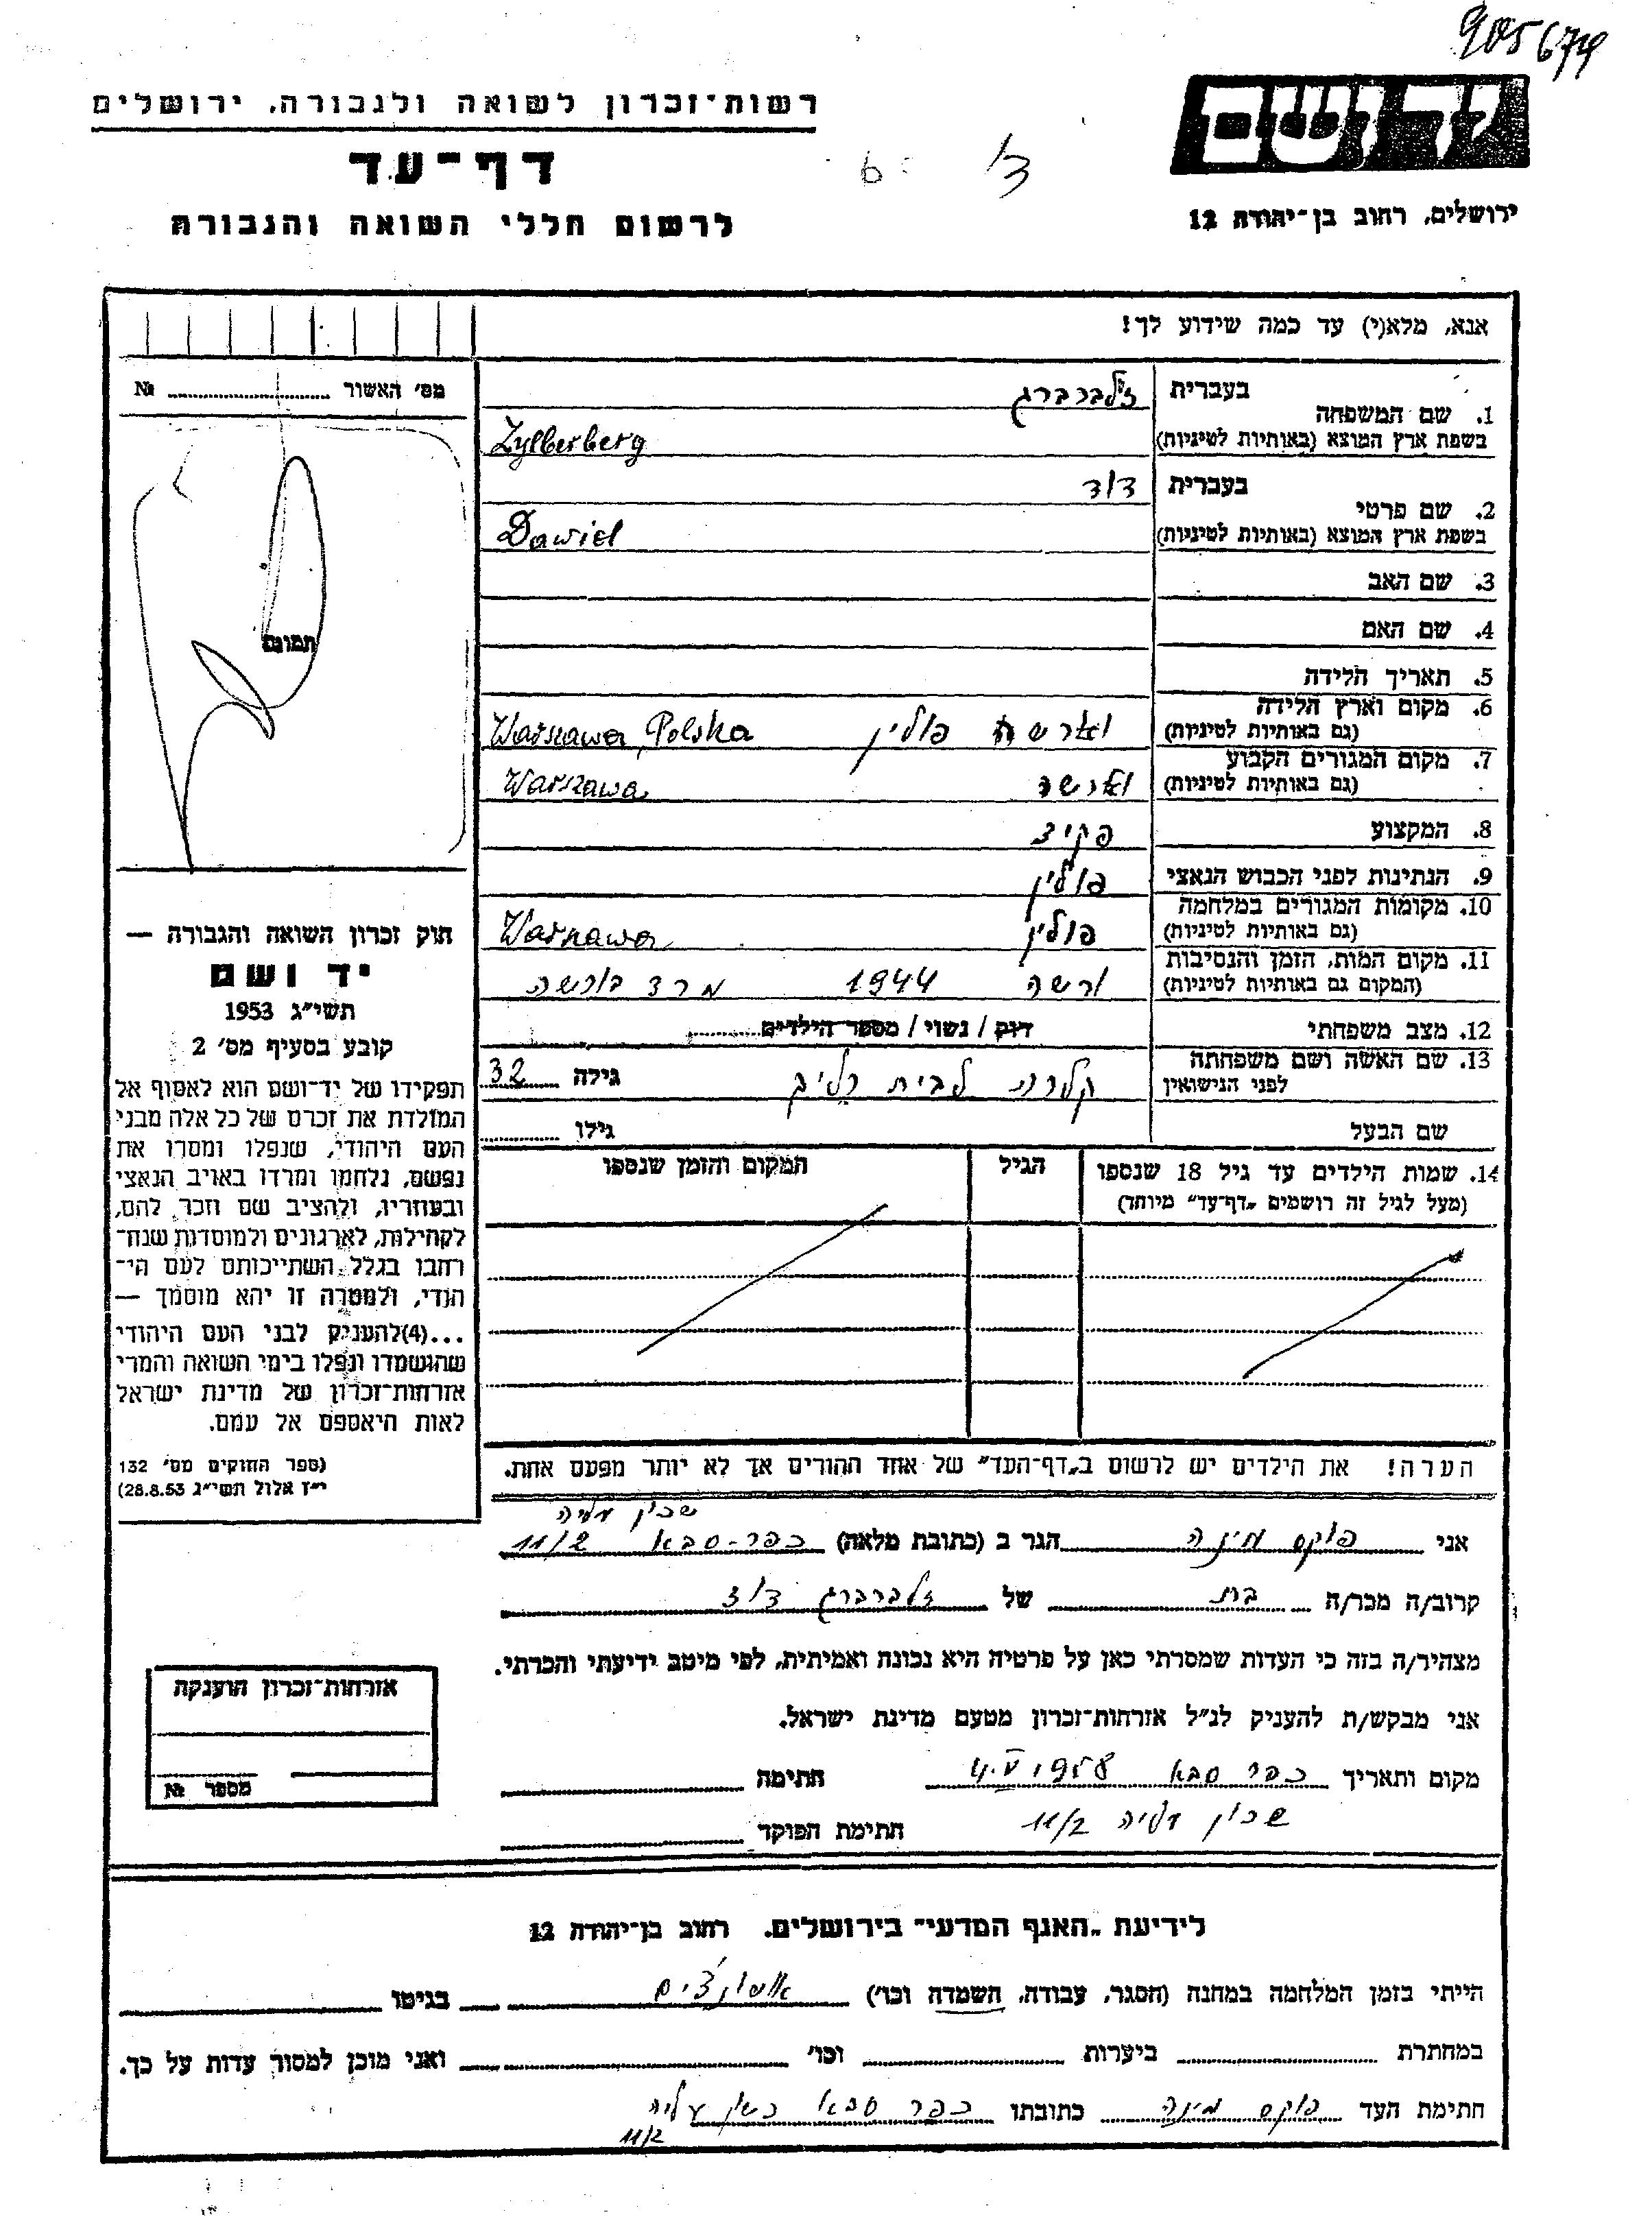 905674
רשות־זכרון לשואה ולגבורה, ירושלים
ידושם
דף־עד
לרשום חללי השואה והגבורה
ירושלים, רחוב בן־יהודה 12
אנא, מלא(י) עד כמה שידוע לך!
מס' האשור ........ №
תמונה
בעברית זילברברג
1. שם המשפחה
בשפת ארץ המוצא (באותיות לטיניות) Zylberberg
בעברית דוד
2. שם פרטי
בשפת ארץ המוצא (באותיות לטיניות) Dawid
3. שם האב
4. שם האם
5. תאריך הלידה
6. מקום וארץ הלידה
(גם באותיות לטיניות) וארשה פולין Warszawa, Polska
7. מקום המגורים הקבוע
(גם באותיות לטיניות) וארשה Warszawa
8. המקצוע פקיד
9. הנתינות לפני הכבוש הנאצי פולין
10. מקומות המגורים במלחמה
(גם באותיות לטיניות) פולין Warszawa
11. מקום המות, הזמן והנסיבות
(המקום גם באותיות לטיניות) ורשה 1944 מרד בורשה
12. מצב משפחתי רווק / נשוי / מספר הילדים
13. שם האשה ושם משפחתה
לפני הנישואין לבית גילה 32
שם הבעל גילו
14. שמות הילדים עד גיל 18 שנספו הגיל המקום והזמן שנספו
(מעל לגיל זה רושמים "דף־עד" מיוחד)
הערה! את הילדים יש לרשום ב"דף־העד" של אחד ההורים אך לא יותר מפעם אחת.
חוק זכרון השואה והגבורה —
יד ושם
תשי"ג 1953
קובע בסעיף מס' 2
תפקידו של יד־ושם הוא לאסוף אל
המולדת את זכרם של כל אלה מבני
העם היהודי, שנפלו ומסרו את
נפשם, נלחמו ומרדו באויב הנאצי
ובעוזריו, ולהציב שם וזכר להם,
לקהילות, לארגונים ולמוסדות שנח־
רבו בגלל השתייכותם לעם הי־
הודי, ולמטרה זו יהא מוסמך —
...(4)להעניק לבני העם היהודי
שהושמדו ונפלו בימי השואה והמרי
אזרחות־זכרון של מדינת ישראל
לאות היאספם אל עמם.
(ספר החוקים מס' 132
י"ז אלול תשי"ג 28.8.53)
שכון עליה
אני פוקס מינה הגר ב (כתובת מלאה) כפר-סבא 11/2
קרוב/ה מכר/ה בת של זילברברג דוד
מצהיר/ה בזה כי העדות שמסרתי כאן על פרטיה היא נכונה ואמיתית, לפי מיטב ידיעתי והכרתי.
אני מבקש/ת להעניק לנ"ל אזרחות־זכרון מטעם מדינת ישראל.
מקום ותאריך כפר סבא 4.V 1958 חתימה
שכון עליה 11/2 חתימת הפוקד
אזרחות־זכרון הוענקה
מספר №
לידיעת "האגף המדעי" בירושלים. רחוב בן־יהודה 12
הייתי בזמן המלחמה במחנה (הסגר, עבודה, השמדה וכו') בגיטו
במחתרת ביערות וכו' ואני מוכן למסור עדות על כך.
חתימת העד פוקס מינה כתובתו כפר סבא שכון עליה
11/2